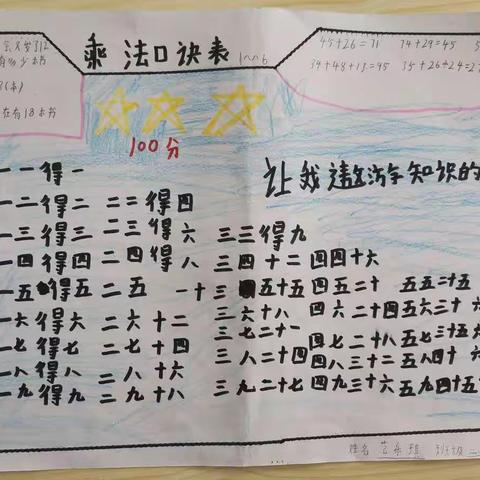 乘法口诀表 1~6
100分
有多少本书
8(本)
在有18本书
45+26=71 74+29=45
34+48+13=95 35+26+24=
让我遨游于知识的
一一得一
一二得二 二二得四
一三得三 二三得六 三三得九
一四得四 二四得八 三四十二 四四十六
一五得五 二五一十 三五十五 四五二十 五五二十五
一六得六 二六十二 三六十八 四六二十四 五六三十
一七得七 二七十四 三七二十一 四七二十八 五七三十五
一八得八 二八十六 三八二十四 四八三十二 五八四十
一九得九 二九十八 三九二十七 四九三十六 五九四十五
姓名 班级